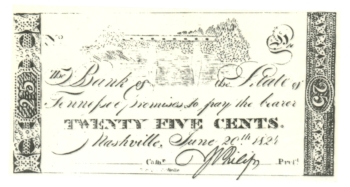 No
The Bank of the State of
Tennessee promises to pay the bearer
TWENTY FIVE CENTS.
Nashville, June 20th 1824
Presdt